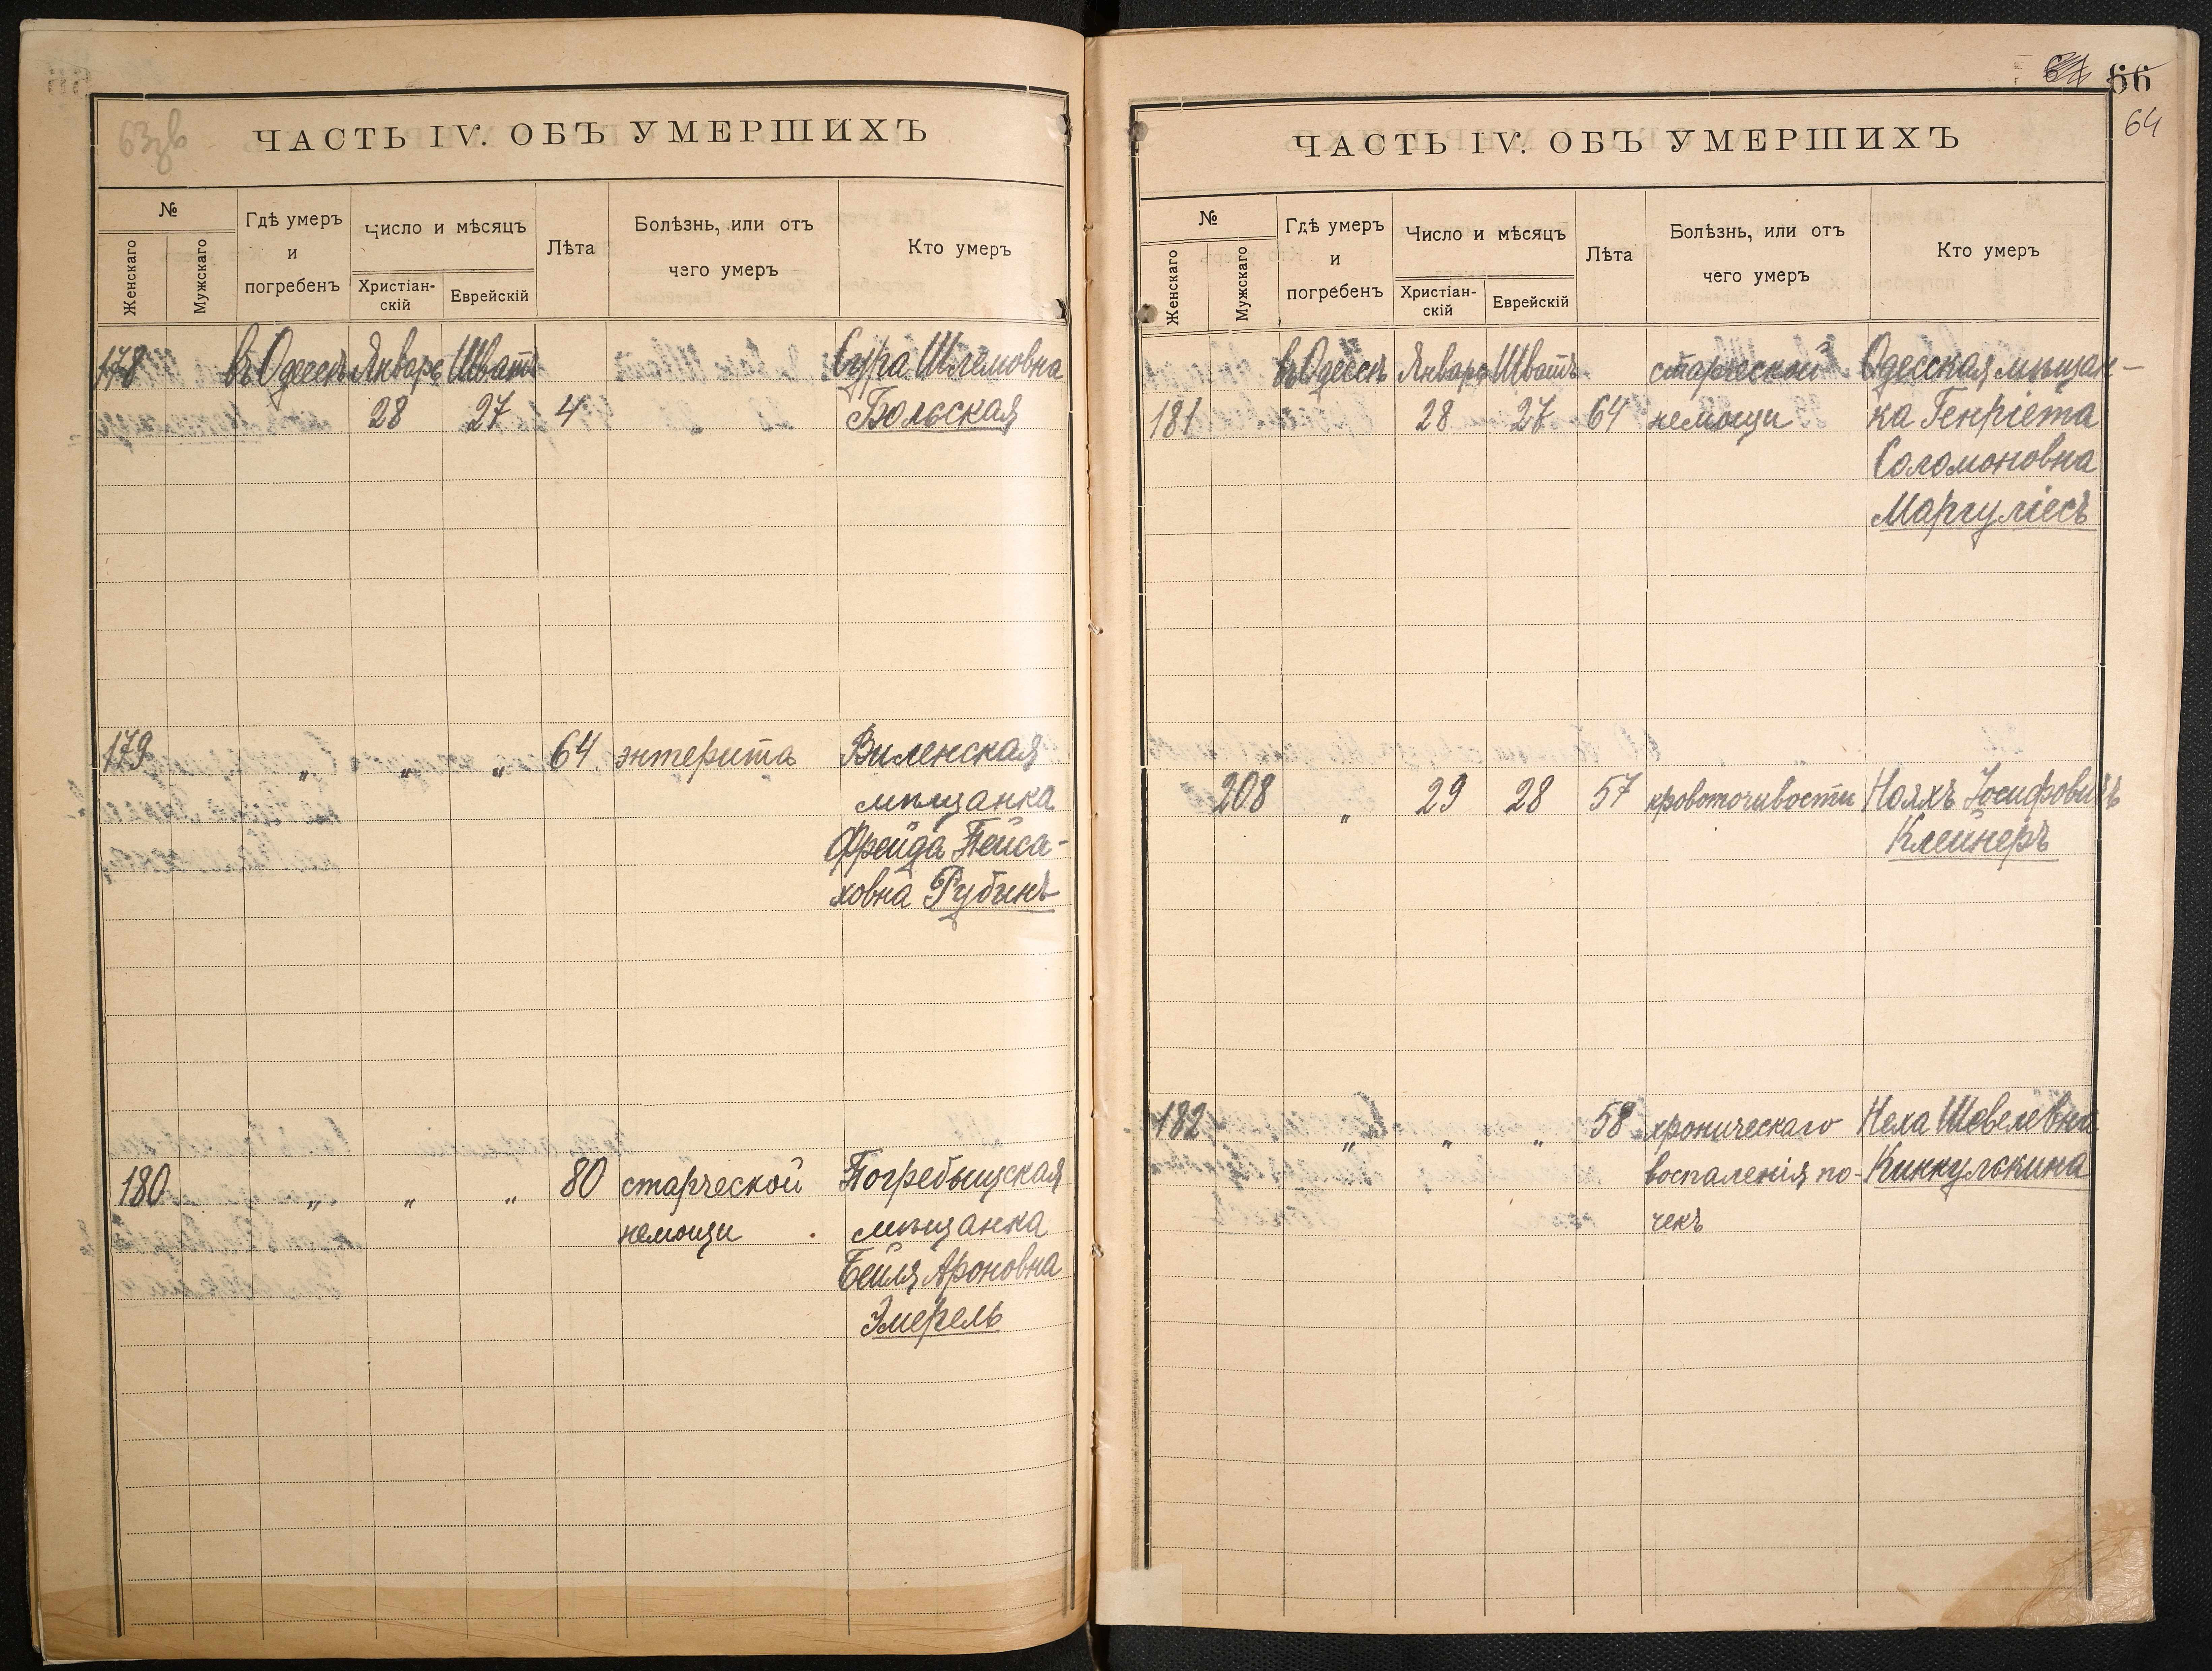 63зв
ЧАСТЬ IV. ОБЪ УМЕРШИХЪ
№
Женскаго
Мужскаго
Гдѣ умеръ
и
погребенъ
Число и мѣсяцъ
Христіан-
скій
Еврейскій
Лѣта
Болѣзнь, или отъ
чего умеръ
Кто умеръ
178 въ Одессѣ Января Шватъ Сура Шлемовна
28 27 4 Бѣльская
179 " " " 64 энтерита Виленская
мѣщанка
Фрейда Пейса-
ховна Рубинъ
180 " " " 80 старческой Погребыщская
немощи мѣщанка
Бейля Ароновна
Эмерель
66
64
ЧАСТЬ IV. ОБЪ УМЕРШИХЪ
№
Женскаго
Мужскаго
Гдѣ умеръ
и
погребенъ
Число и мѣсяцъ
Христіан-
скій
Еврейскій
Лѣта
Болѣзнь, или отъ
чего умеръ
Кто умеръ
въ Одессѣ Января Шватъ старческой Одесская мѣщан-
181 28 27 64 немощи ка Генріета
Соломоновна
Маргуліесъ
208 " 29 28 57 кровоточивости Нояхъ Іосифовичъ
Клейнеръ
182 " " " 58 хроническаго Неха Шевелевна
воспаленія по- Кинкулькина
чекъ